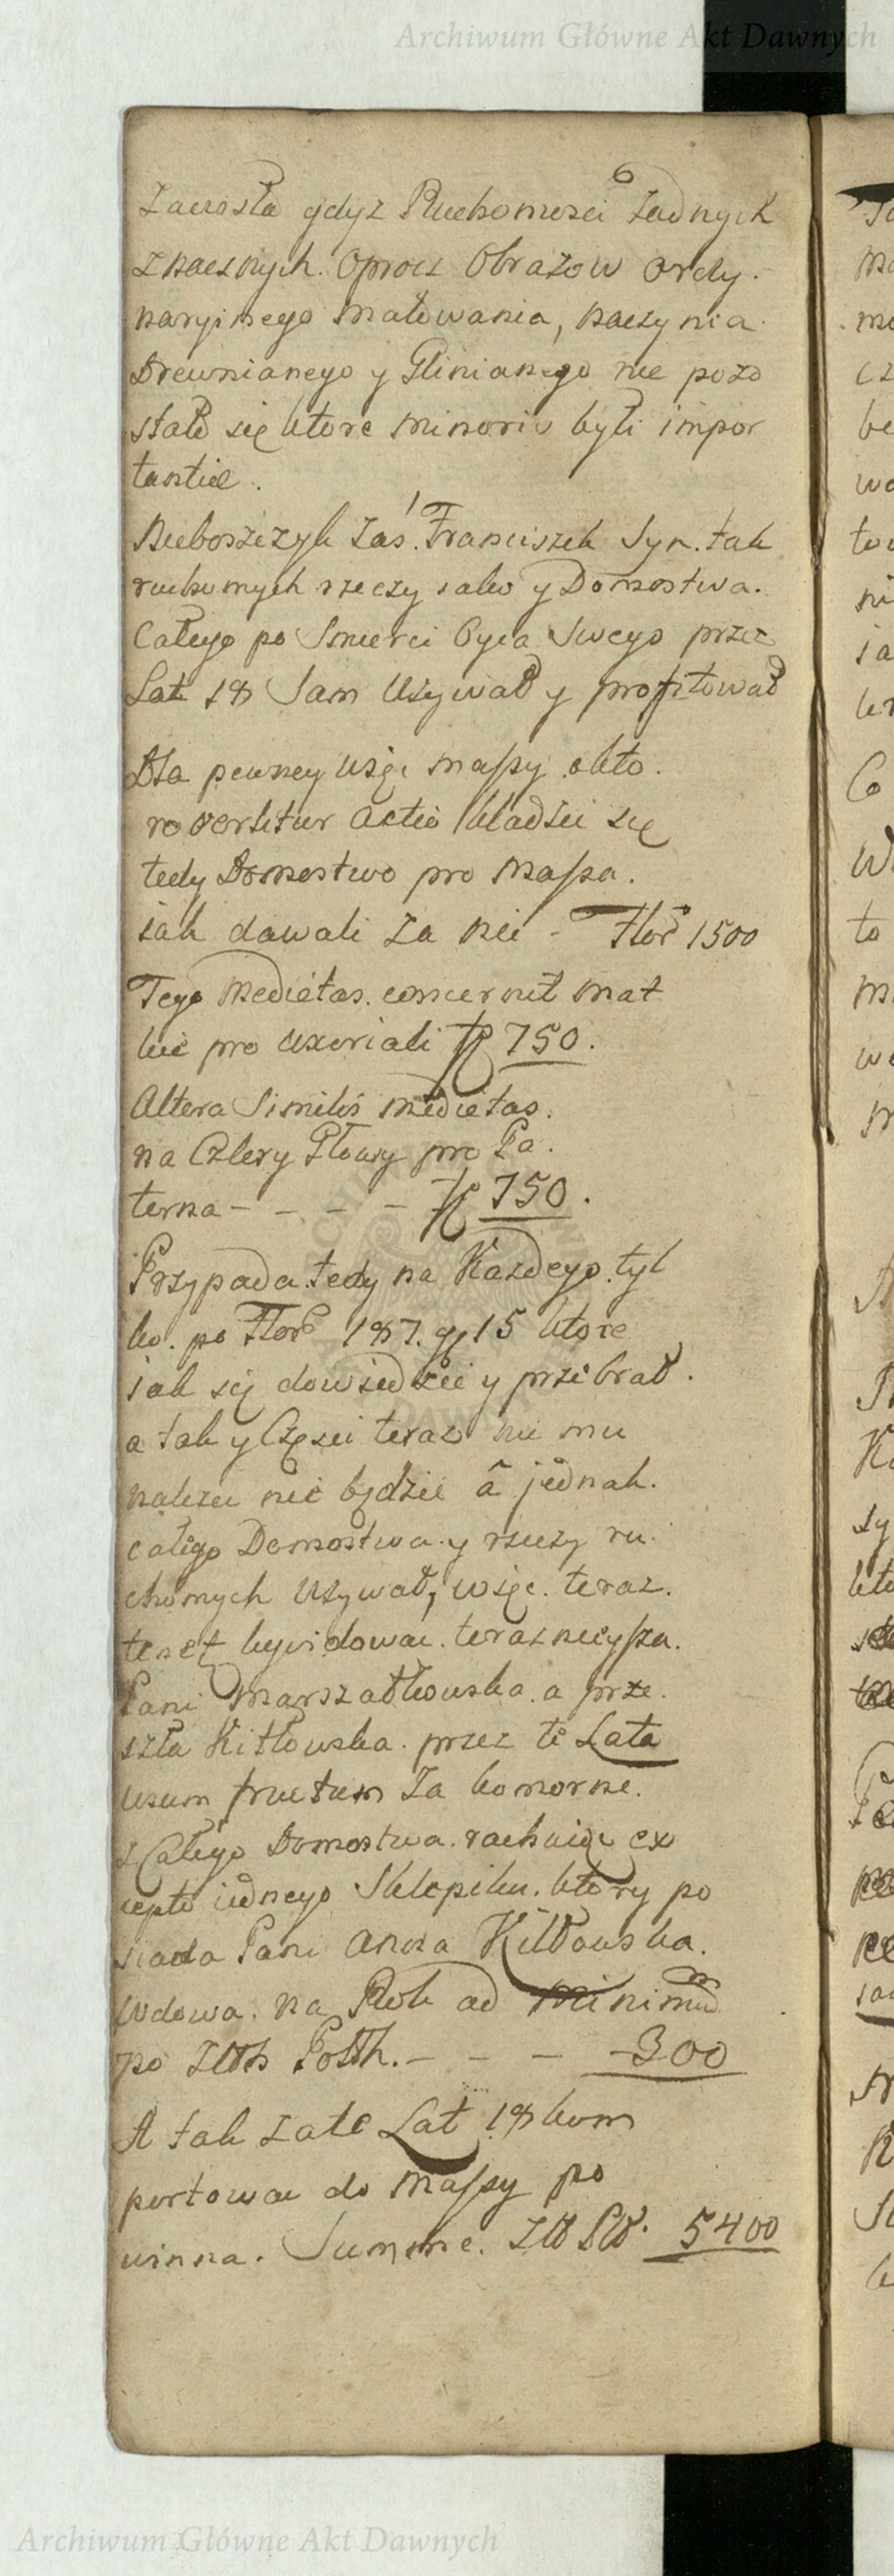 Archiwum Główne Akt Dawnych
zaerosła gdyz Ruchomosci zadnych
znacznych. Oprocz Obrazow Ordy.
naryinego malowania, naczynia
Drewnianego y Glinianego nie pozo
stało się ktore minoris byli impor
tantiæ.
Nieboszczyk zaś. Franciszek Syn. tak
ruchomych rzeczy iako y Domostwa.
Całego po Smierci Oyca Swego przez
Lat 18 Sam Uzywał y profitował
Dla pewney więc massy okto.
ro vertitur actio kładzie się
tedy Domostwo pro massa.
iak dawali za nie - Flor 1500
Tego medietas. concernit mat
kę pro uxoriali fl 750.
Altera Similis medietas.
na Cztery Głowy pro Pa.
terna - - - - fl 750.
Przypada tedy na Kazdego. tyl
ko. po Flor 187. g 15 ktore
iak się dowiedzie y przebrał.
a tak y Części teraz nie mu
nalezec nie będzie â jednak.
całego Domostwa y rzeczy ru.
chomych Uzywał, więc. teraz.
teraznieysza.
Pani Marszałkowska. a prze.
szła Kitłowska. przez te Lata
usum fructum Za komorne.
z Całego Domostwa. rachuiąc ex
cepto iednego Sklepiku. ktory po
siada Pani Anna Kitłowska.
Wdowa. na Rok ad minimum
po Złłth Polth. - - - 300
A tak za te Lat 18 kom
portowac do Massy po
winna. Summe. Złł Pol. 5400
Archiwum Główne Akt Dawnych